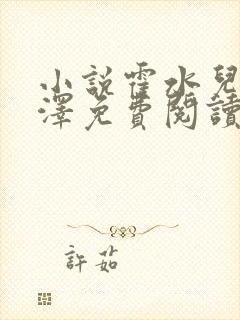 小說霍水兒
澤免費閱讀
許茹